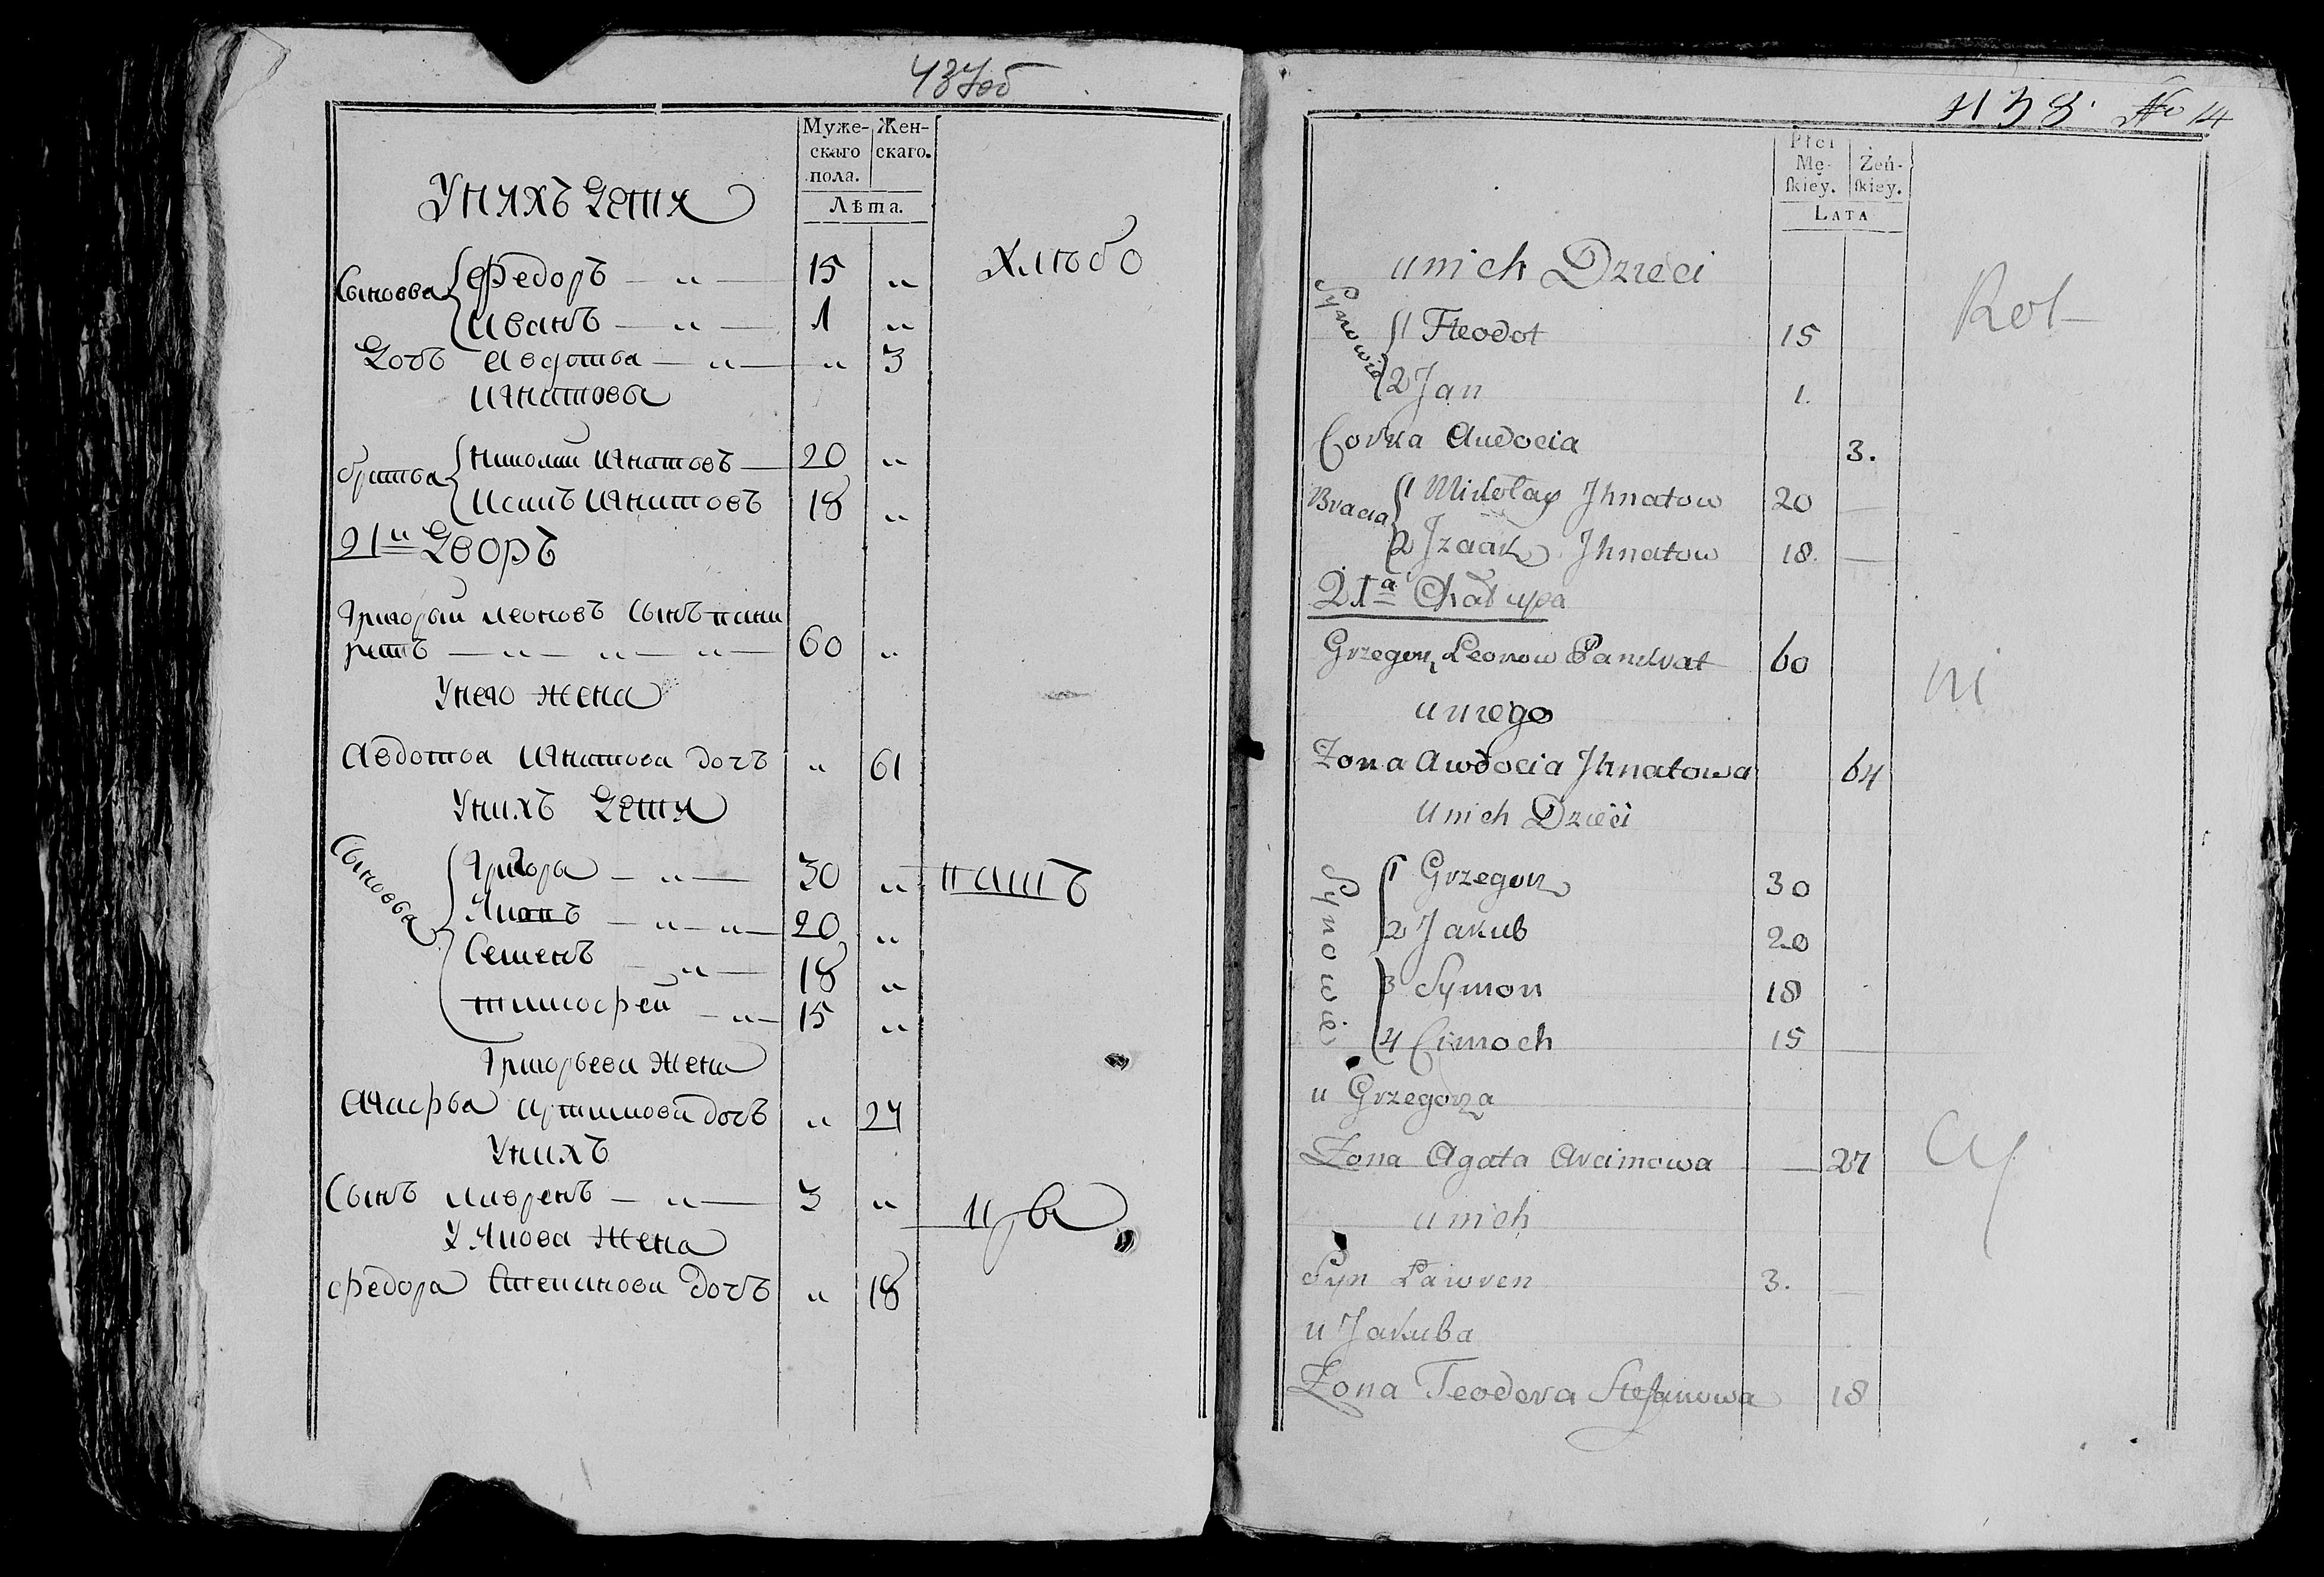 437об
Муже- Жен-
скаго скаго.
пола.
Лѣта.
Унихъ Дети
Хлѣбо
Сыновва Федоръ 15 „
Иванъ 1 „
Дочь Авдотьа „ 3
Игнатова
братьа Николай Игнатовъ 20 „
Исакъ Игнатовъ 18 „
21й Дворъ
Григорый Леоновъ Сынъ панк
ратъ 60 „
Унего жена
Авдотьа Игнатова дочъ „ 61
Унихъ Дети
Сыновва Григора 30 „ пашъ
Яковъ 20 „
Семенъ 18 „
тимофей 15 „
Григорьева жена
Агафьа Артимова дочъ „ 27
Унихъ
Сынъ лавренъ 3 „
У Якова жена
федора Степанова дочъ „ 18
438. No 14
Płci
Mę- Żeń-
ſkiey. ſkiey.
LATA
unich Dzieci
Rol-
Synowie 1 Fteodot 15
2 Jan 1.
Corka Audocia 3.
Bracia 1 Mikołay Jhnatow 20
2 Jzaak Jhnatow 18.
21a Chałupa
Grzegorz Leonow Pankrat 60
ni
uniego
Żona Awdocia Jhnatowa 64
Unich Dzieci
Synowie 1 Grzegorz 30
2 Jakub 20
3 Symon 18
4 Cimoch 15
u Grzegorza
Żona Agata Arcimowa 27
cy
unich
Syn Lawren 3.
u Jakuba
Żona Teodora Stefanowa 18